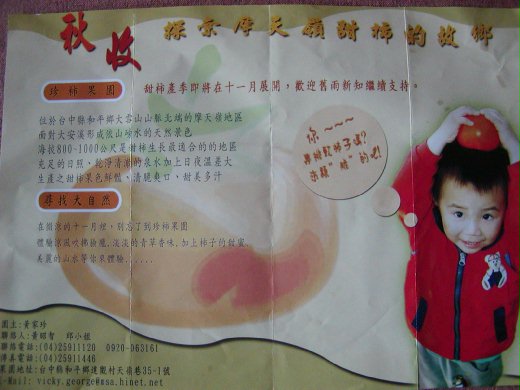 秋收
探索摩天嶺甜柿的故鄉
珍柿果園
甜柿產季即將在十一月展開，歡迎舊雨新知繼續支持。
位於台中縣和平鄉大雪山山脈北端的摩天嶺地區
面對大安溪形成依山吵水的天然景色
海拔800~1000公尺是甜柿生長最適合的的地區
充足的日照，乾淨清澈的泉水加上日夜溫差大
生產之甜柿果色鮮豔，清脆爽口，甜美多汁
你~~~
來顆"脆"的吧!
尋找大自然
在微涼的十一月裡，別忘了到珍柿果園
體驗涼風吹拂臉龐，淡淡的青草香味，加上柿子的甜蜜
美麗的山水等你來體驗......
園主:黃家珍
聯絡人:黃昭智 邱小姐
聯絡電話:(04)25911120 0920-963161
傳真電話:(04)25911446
果園地址:台中縣和平鄉達觀村天嶺巷35-1號
E-Mail: vicky.george@msa.hinet.net